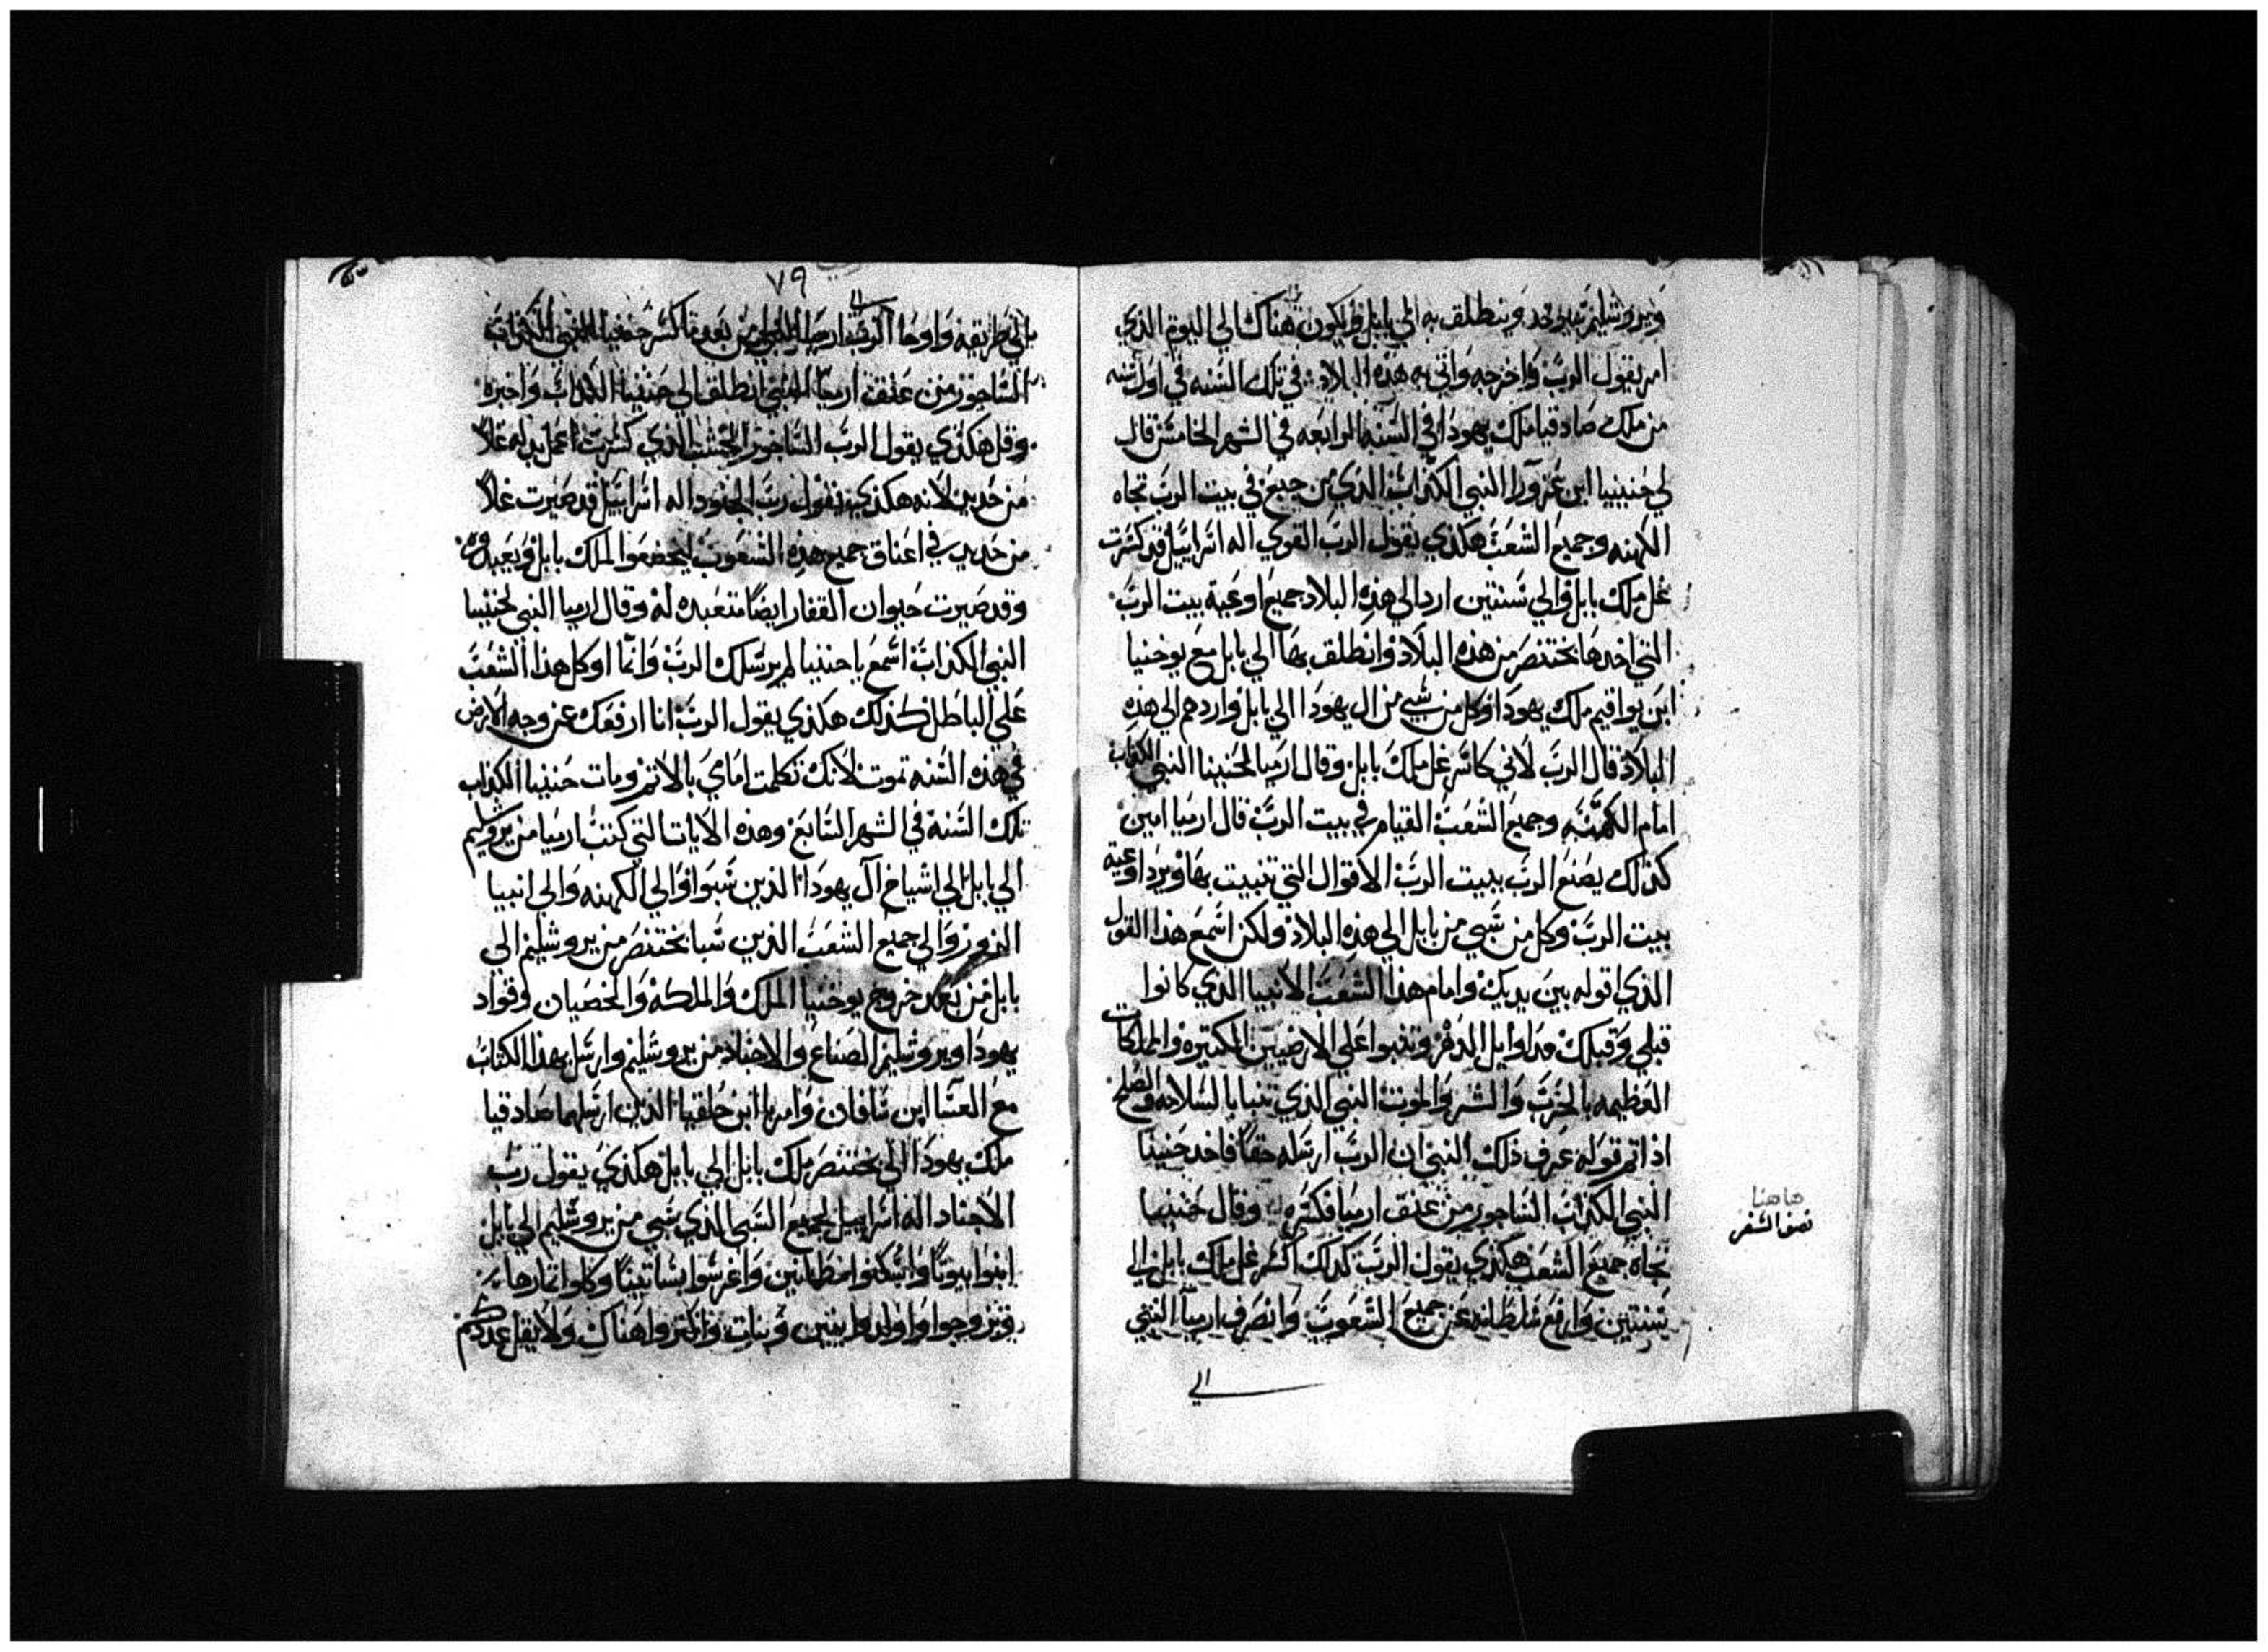 ويروشليم سيوخد وينطلق به الي بابل ويكون هناك الي اليوم الذي
امر يقول الرب واخرجه واتي به هذه البلاد في تلك السنه في اول سنه
من ملك صادقيا ملك يهودا في السنه الرابعه في الشهر الخامس قال
لي حنينيا ابن عزورا النبي الكذاب الذي من جبع في بيت الرب تجاه
الكهنه وجميع الشعب هكذي يقول الرب القوي اله اسراييل قد كسرت
غل ملك بابل والي سنتين ارد الي هذه البلاد جميع اوعية بيت الرب
التي اخدها بختنصر من هذه البلاد وانطلق بها الي بابل مع يوخنيا
ابن يواقيم ملك يهودا وكل من سبي من ال يهودا الي بابل واردهم الي هذه
البلاد قال الرب لاني كاسر غل ملك بابل وقال ارميا لحنينا النبي الكذاب
امام الكهنه وجميع الشعب القيام في بيت الرب قال ارميا امين
كذلك يصنع الرب ببيت الرب الاقوال التي تنبيت بها ويرد اوعية
بيت الرب وكل من سبي من بابل الي هذه البلاد ولكن اسمع هذا القول
الذي اقوله بين يديك وامام هذا الشعب الانبيا الذي كانوا
قبلي وقبلك من اوايل الدهر وتنبوا علي الارضيين الكتيره والملكات
العظيمه بالحرب والشر والموت النبي الذي تنبا بالسلامه والصلح
اذا تم قوله عرف ذلك النبي ان الرب ارسله حقا فاخد حنينا
النبي الكذاب الساجور من عنق ارميا فكسره وقال حنينا
تجاه جميع الشعب هكذي يقول الرب كذلك اكسر غل ملك بابل الي
سنتين وارفع سلطانه عن جميع الشعوب وانصرف ارميا النبي
الي
هاهنا
نصف السفر
٧٩
الي طريقه واوحا الرب الي ارميا من بعد ما كسر حننيا النبي الكذاب
الساجور من عنق ارميا النبي انطلق الي حننيا الكذاب واخبره
وقل هكذي يقول الرب الساجور الخشب الذي كسرت اعمل بدله غلا
من حديد لانه هكذي يقول رب الجنود اله اسراييل قد صيرت غلا
من حديد في اعناق جميع هذه الشعوب ليخضعوا لملك بابل ويعبدونه
وقد صيرت حيوان القفار ايضا متعبده له وقال ارميا النبي لحننيا
النبي الكذاب اسمع يا حننيا لم يرسلك الرب وانما اوكل هذا الشعب
علي الباطل كذلك هكذي يقول الرب انا ارفعك عن وجه الارض
في هذه السنه تموت لانك تكلمت امامي بالاتم ومات حننيا الكذاب
تلك السنة في الشهر السابع وهذه الايات التي كتب ارميا من يروشليم
الي بابل الي اشياخ آل يهودا الذين سبوا والي الكهنه والي انبيا
الزور والي جميع الشعب الذين سبا بختنصر من يروشليم الي
بابل من بعد خروج يوخنيا الملك والملكه والخصيان وقواد
يهودا ويروشليم الصناع والاجناد من يروشليم وارسل بهذا الكتاب
مع العسا ابن سافان وامريا ابن حلقيا الذين ارسلهما صادقيا
ملك يهودا الي بختنصر ملك بابل الي بابل هكذي يقول رب
الاجناد اله اسراييل لجميع السبي الذي سبي من يروشليم الي بابل
ابنوا بيوتا واسكنوا مطمانين واغرسوا بساتينا وكلوا اتمارها
وتزوجوا واولدوا بنين وبنات واكثروا هناك ولا يقل عددكم